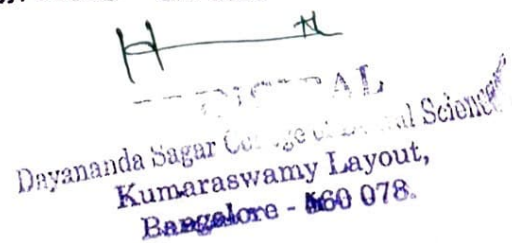 Dayananda Sagar College of Dental Sciences
Kumaraswamy Layout,
Bangalore - 560 078.